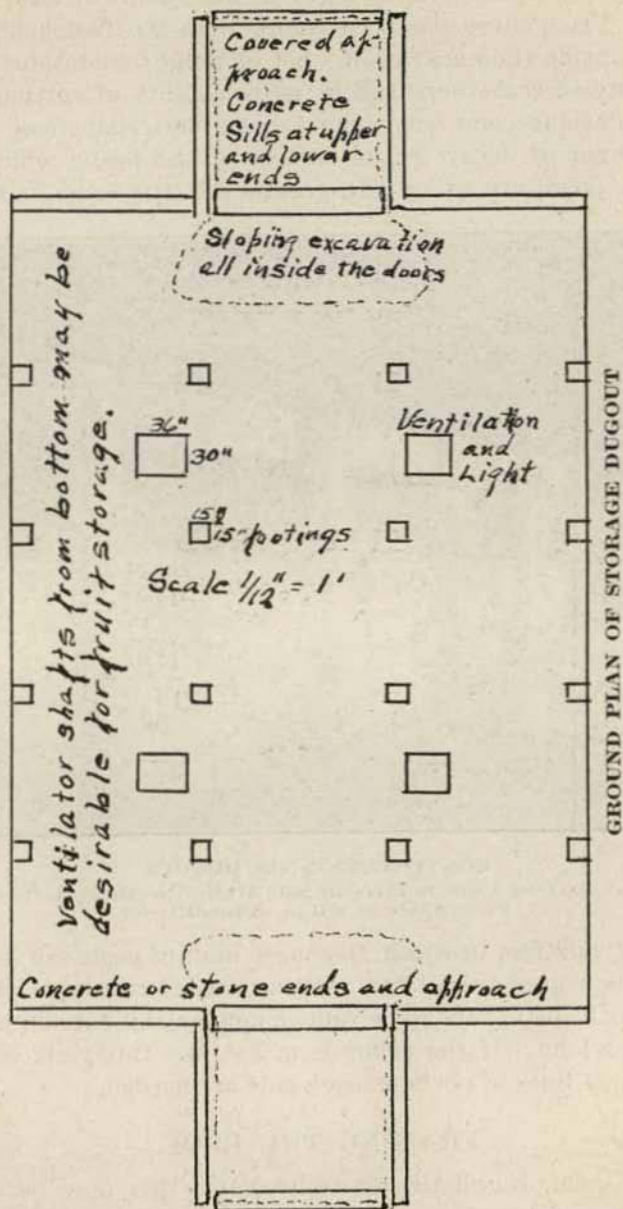 Covered ap
proach.
Concrete
Sills at upper
and lowar
ends
Sloping excavation
all inside the doors
Ventilator shafts from bottom may be
desirable for fruit storage.
36"
30"
Ventilation
and
Light
15"
15-footings
Scale 1/12" = 1'
Concrete or stone ends and approach
GROUND PLAN OF STORAGE DUGOUT